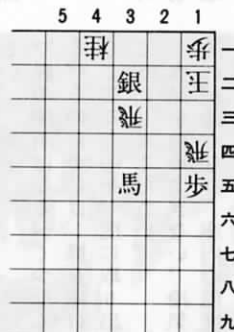 5 4 3 2 1
桂 歩 一
銀 王 二
飛 三
飛 四
馬 歩 五
六
七
八
九